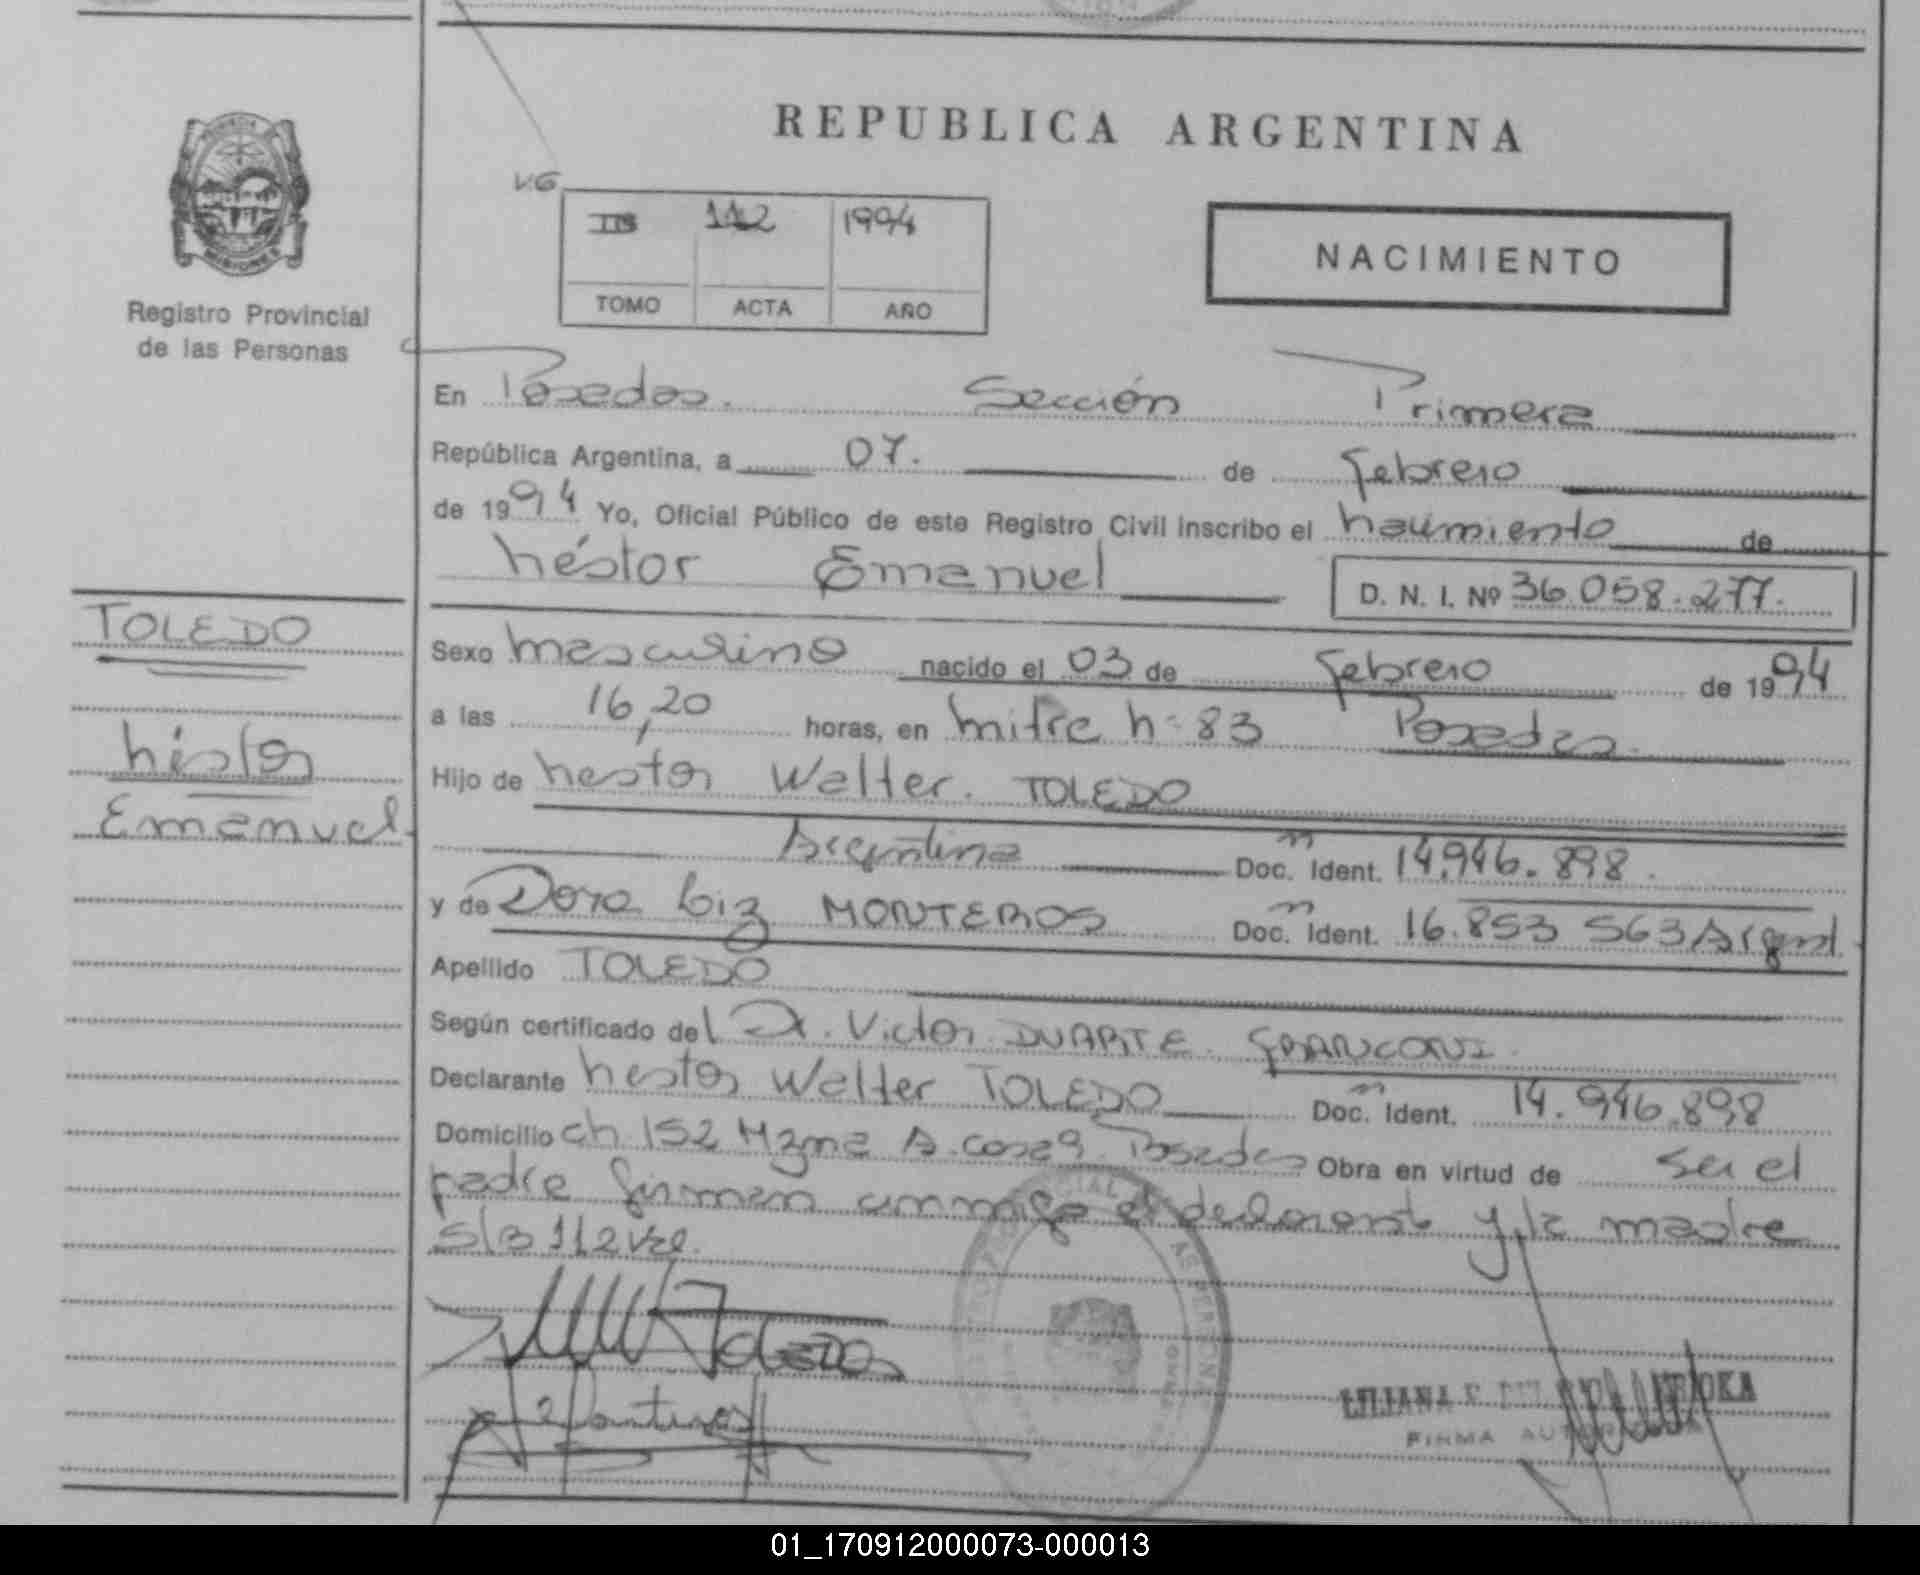 REPUBLICA ARGENTINA
MISIONES
Registro Provincial
de las Personas
V.6
112 1994
TOMO ACTA AÑO
NACIMIENTO
En Posadas. Sección Primera
República Argentina, a 07. de febrero
de 1994 Yo, Oficial Público de este Registro Civil inscribo el nacimiento de
héstor Emanuel
D. N. I. Nº 36.058.277.
TOLEDO
héstor
Emanuel
Sexo masculino nacido el 03 de febrero de 1994
a las 16,20 horas, en mitre n= 83 Posadas.
Hijo de hestor Walter. TOLEDO
Argentina Doc. Ident. 14.946.898.
y de Dora Liz MONTEROS Doc. Ident. 16.853 563 Argent.
Apellido TOLEDO
Según certificado del Dr. Victor DUARTE FRANCONI.
Declarante hestor Walter TOLEDO Doc. Ident. 14.946.898
Domicilio ch 152 Mzna A. casa 9 Posadas Obra en virtud de ser el
padre firman conmigo el declarante y la madre
S/B 112 Vale.
TOLEDO
LILIANA
FIRMA
01_170912000073-000013